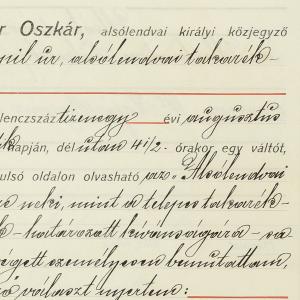 r Oszkár, alsólendvai királyi közjegyző
pil úr, alsólendvai takarék-
lenczszáz tizenegy évi augusztus
napján, dél után 4 1/2- órakor egy váltót,
ulsó oldalon olvasható „az „Alsólendvai
neki, mint a telepes takarék-
határozott kívánságára
személyesen bemutattam,
választ nyertem: